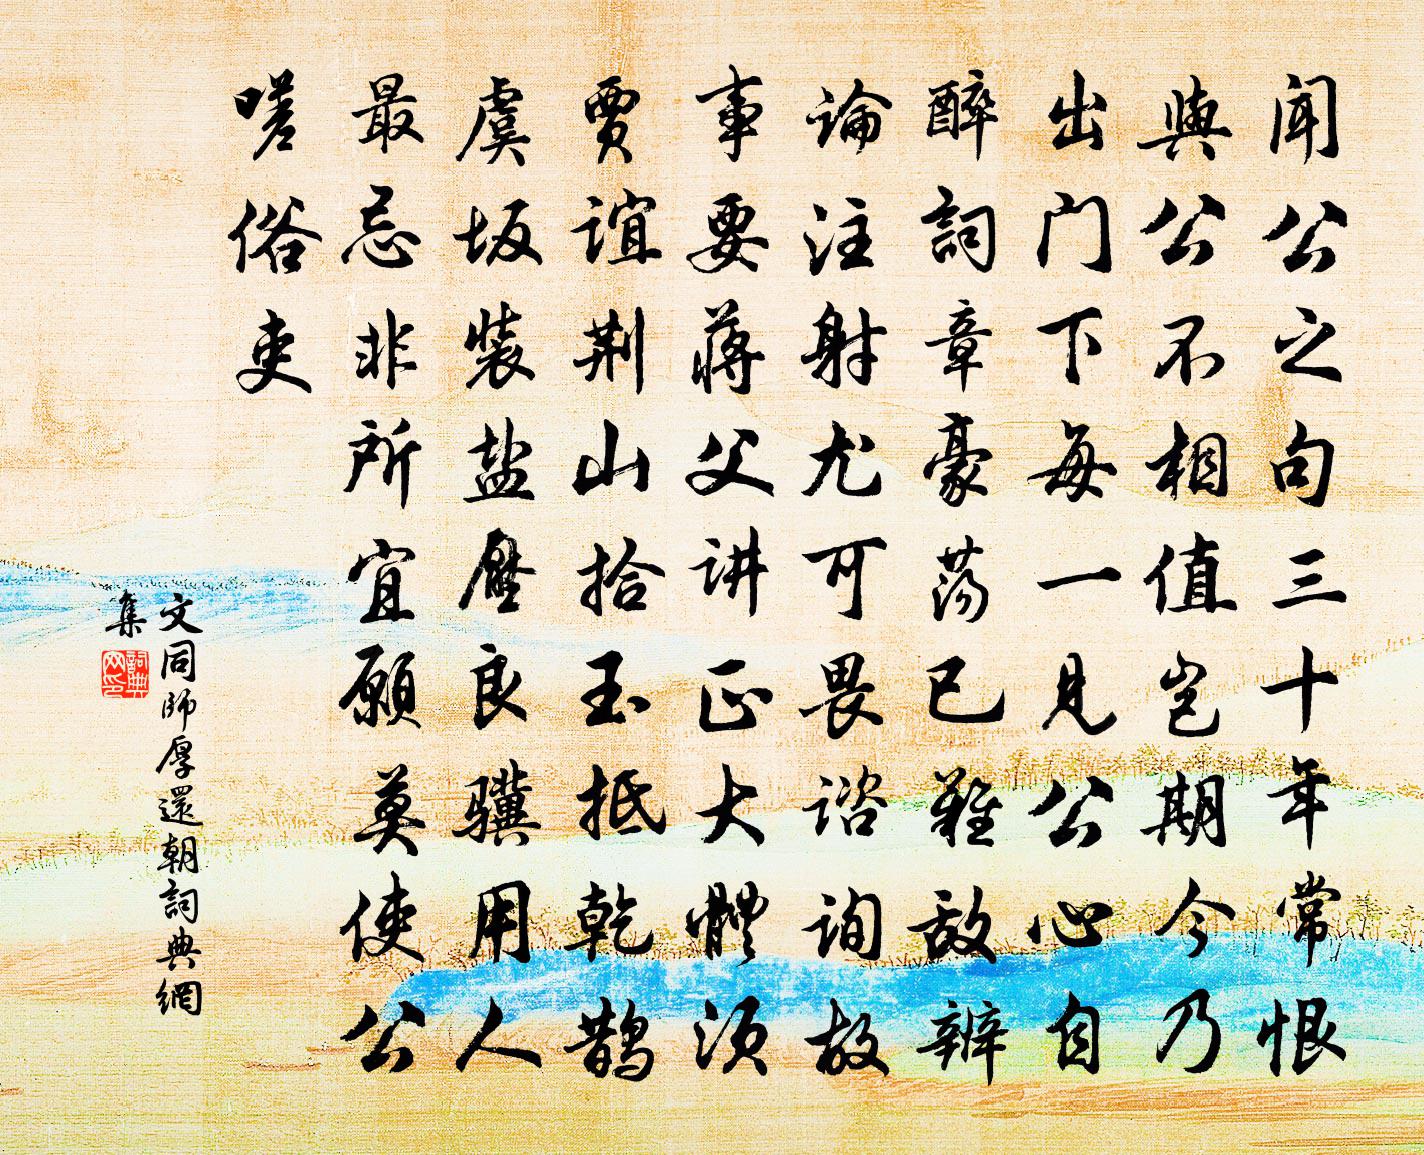 闻公之句三十年常恨
與公不相值岂期今乃
出门下每一見公心自
醉詞章豪荡已難敌辨
論注射尤可畏谘询故
事要蒋父讲正大體须
贾谊荆山拾玉抵乾鹊
虞坂裝盐壓良骥用人
最忌非所宜願莫使公
嗟俗吏
文同師厚還朝詞典網
集
詞典
网印